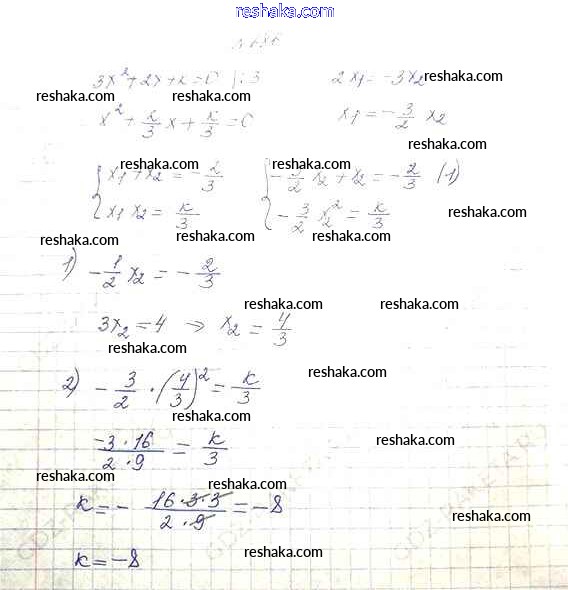 reshaka.com
3x² + 2x + k = 0 |:3        2x₁ = -3x₂
reshaka.com        reshaka.com
x² + 2/3 x + k/3 = 0        x₁ = -3/2 x₂
reshaka.com
{ x₁ + x₂ = -2/3        { -3/2 x₂ + x₂ = -2/3 (1)
reshaka.com        reshaka.com
{ x₁ x₂ = k/3        { -3/2 x₂² = k/3
reshaka.com        reshaka.com
reshaka.com        reshaka.com
1) -1/2 x₂ = -2/3
reshaka.com        reshaka.com
3x₂ = 4 ⇒ x₂ = 4/3
reshaka.com
2) -3/2 · (4/3)² = k/3
reshaka.com
reshaka.com
-3·16 / 2·9 = k/3
reshaka.com
reshaka.com        reshaka.com
k = - 16·3·3 / 2·9 = -8
reshaka.com
k = -8
reshaka.com        reshaka.com
reshaka.com